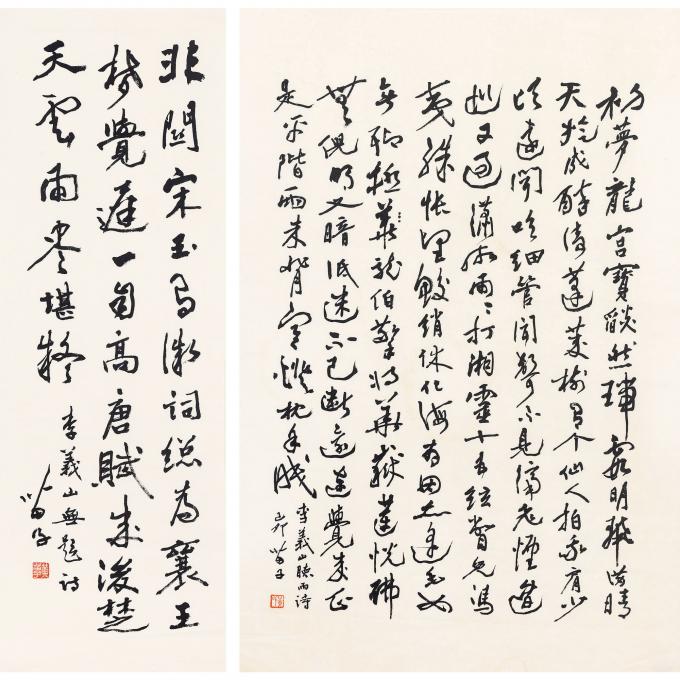 非關宋玉有微詞總為襄王
夢覺遲一自高唐賦成後楚
天雲雨盡堪疑
李義山無題詩
苗子
初夢龍宮寶燄然瑞霞明麗滿晴
天旋成醉倚蓬萊樹有个仙人拍我肩少
頃遠聞吹細管聞聲不見隔飛煙逡
巡又過瀟湘雨〻打湘靈五十弦瞥見馮
夷殊悵望鮫綃休化海為田亦逢毛女
無聊極華龍伯擎將華嶽蓮恍惚
無倪明又暗低迷不已斷還連覺來正
是平階雨未背寒燈枕手眠
李義山聽雨詩
卯苗子